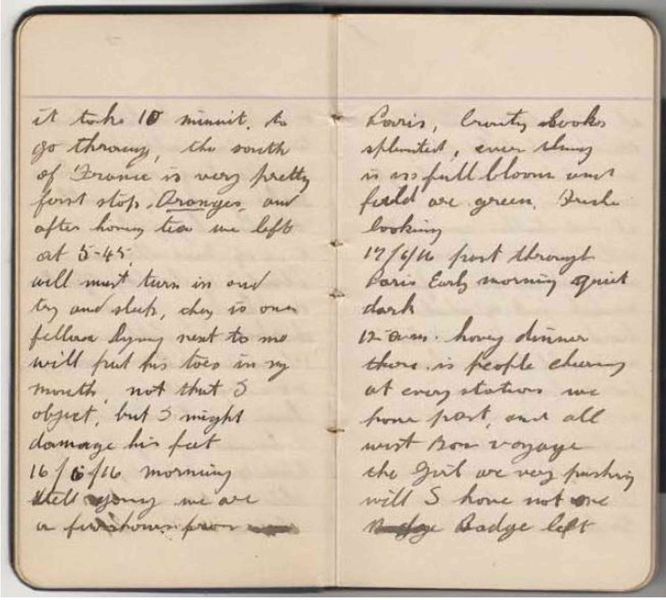 it take 10 minuit. to
go through, the south
of France is very pretty
first stop. Oranges, and
after having tea we left
at 5-45.
will must turn in and
try and sleep, day is over
fellow lying next to me
will put his toes in my
mouth, not that I
object, but I might
damage his feet
16/6/16 morning
still going we are
a few hours from
Paris, Country looks
splendid, every thing
is in full bloom and
field are green, Fresh
looking
17/6/16 past through
Paris Early morning quiet
dark
12-a.m. having dinner
there is people cheering
at every station we
have past, and all
wist Bon voyage
the Girl are very pushing
will I have not one
Badge left